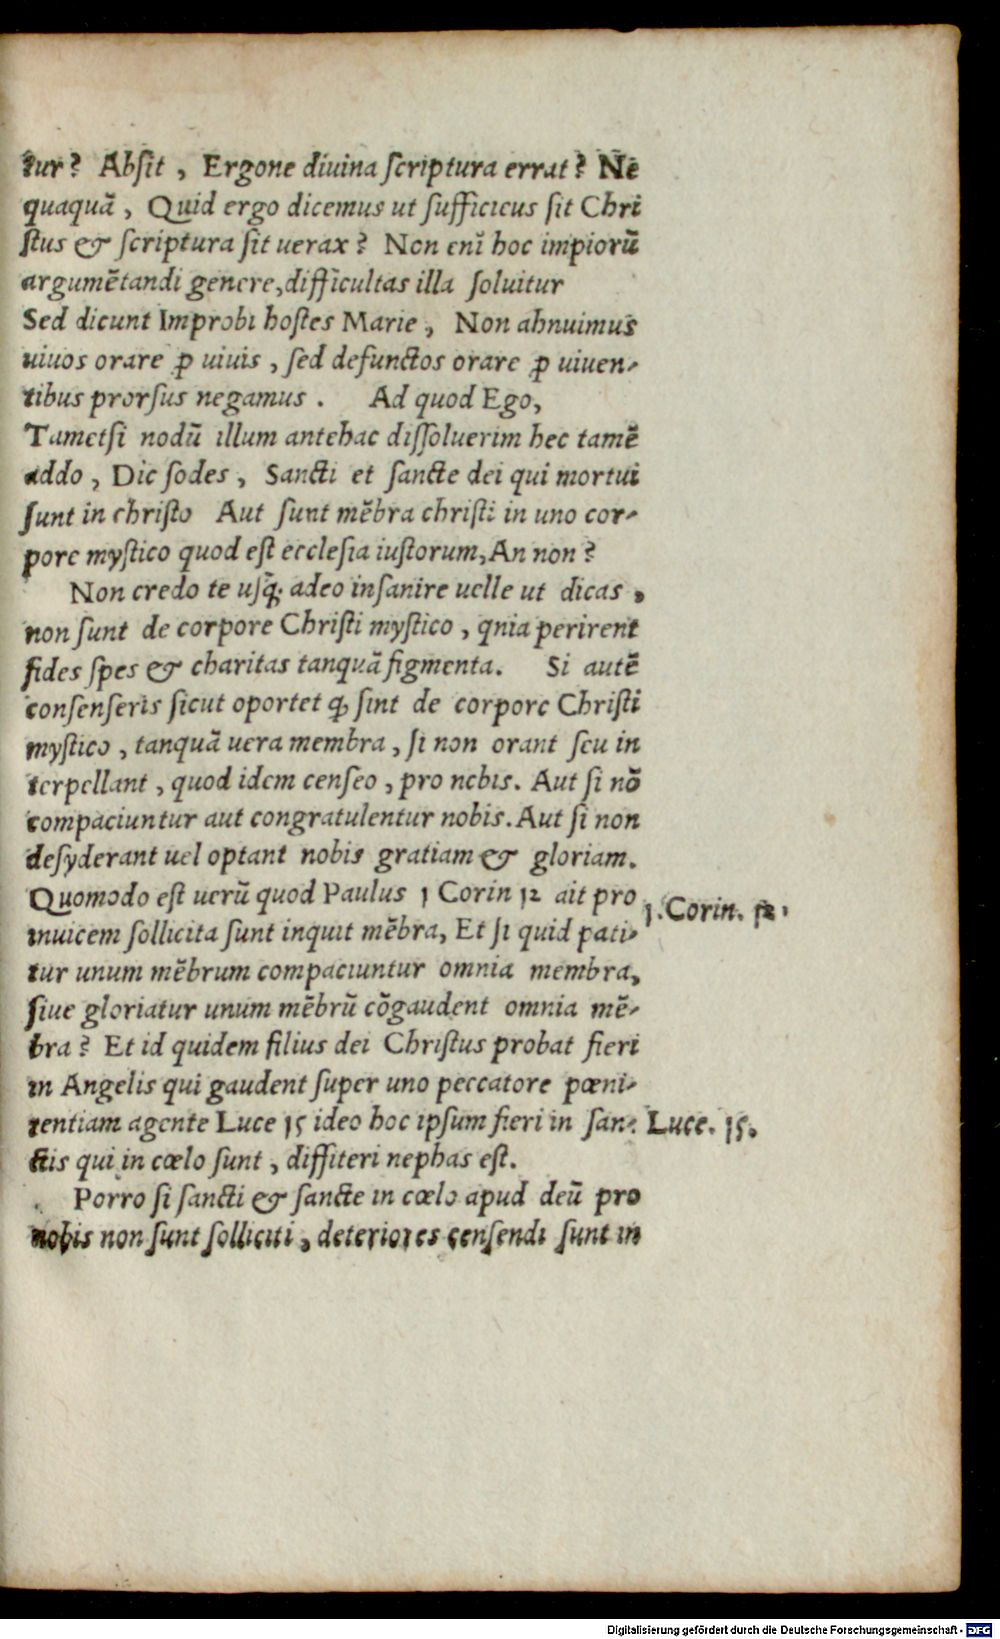 tur? Absit, Ergone diuina scriptura errat? Ne
quaquā, Quid ergo dicemus ut sufficicus sit Chri
stus & scriptura sit uerax? Non enī hoc impiorū
argumētandi genere, difficultas illa soluitur
Sed dicunt Improbi hostes Marie, Non abnuimus
uiuos orare ꝓ uiuis, sed defunctos orare ꝓ uiuen-
tibus prorsus negamus. Ad quod Ego,
Tametsi nodū illum antehac dissoluerim hec tamē
addo, Dic sodes, Sancti et sancte dei qui mortui
sunt in christo Aut sunt mēbra christi in uno cor-
pore mystico quod est ecclesia iustorum, An non?
Non credo te usq; adeo insanire uelle ut dicas,
non sunt de corpore Christi mystico, qnia perirent
fides spes & charitas tanquā figmenta. Si autē
consenseris sicut oportet ꝙ sint de corpore Christi
mystico, tanquā uera membra, si non orant seu in
terpellant, quod idem censeo, pro nebis. Aut si nō
compaciuntur aut congratulentur nobis. Aut si non
desyderant uel optant nobis gratiam & gloriam.
Quomodo est uerū quod Paulus 1 Corin 12 ait pro
inuicem sollicita sunt inquit mēbra, Et si quid pati-
tur unum mēbrum compaciuntur omnia membra,
siue gloriatur unum mēbrū cōgaudent omnia mē-
bra? Et id quidem filius dei Christus probat fieri
in Angelis qui gaudent super uno peccatore pœni-
tentiam agente Luce 15 ideo hoc ipsum fieri in san-
ctis qui in cœlo sunt, diffiteri nephas est.
Porro si sancti & sancte in cœlo apud deū pro
nobis non sunt solliciti, deteriores censendi sunt in
1. Corin. 12.
Luce. 15.
Digitalisierung gefördert durch die Deutsche Forschungsgemeinschaft - DFG